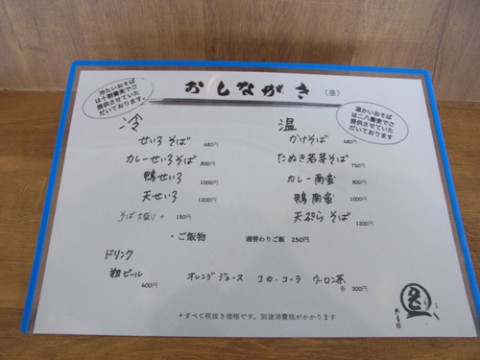 おしながき（昼）
冷たいおそば
は十割蕎麦でご
提供させていた
だいております。
温かいおそば
は二八蕎麦でご
提供させていた
だいております
冷
せいろそば 680円
カレーせいろそば 800円
鴨せいろ 1000円
天せいろ 1200円
そば大盛り + 150円
温
かけそば 680円
たぬき若芽そば 750円
カレー南蛮 800円
鴨南蛮 1000円
天ぷらそば 1200円
・ご飯物 週替わりご飯 250円
ドリンク
瓶ビール 600円
オレンジジュース コカ・コーラ ウーロン茶
各 300円
*すべて税抜き価格です。別途消費税がかかります